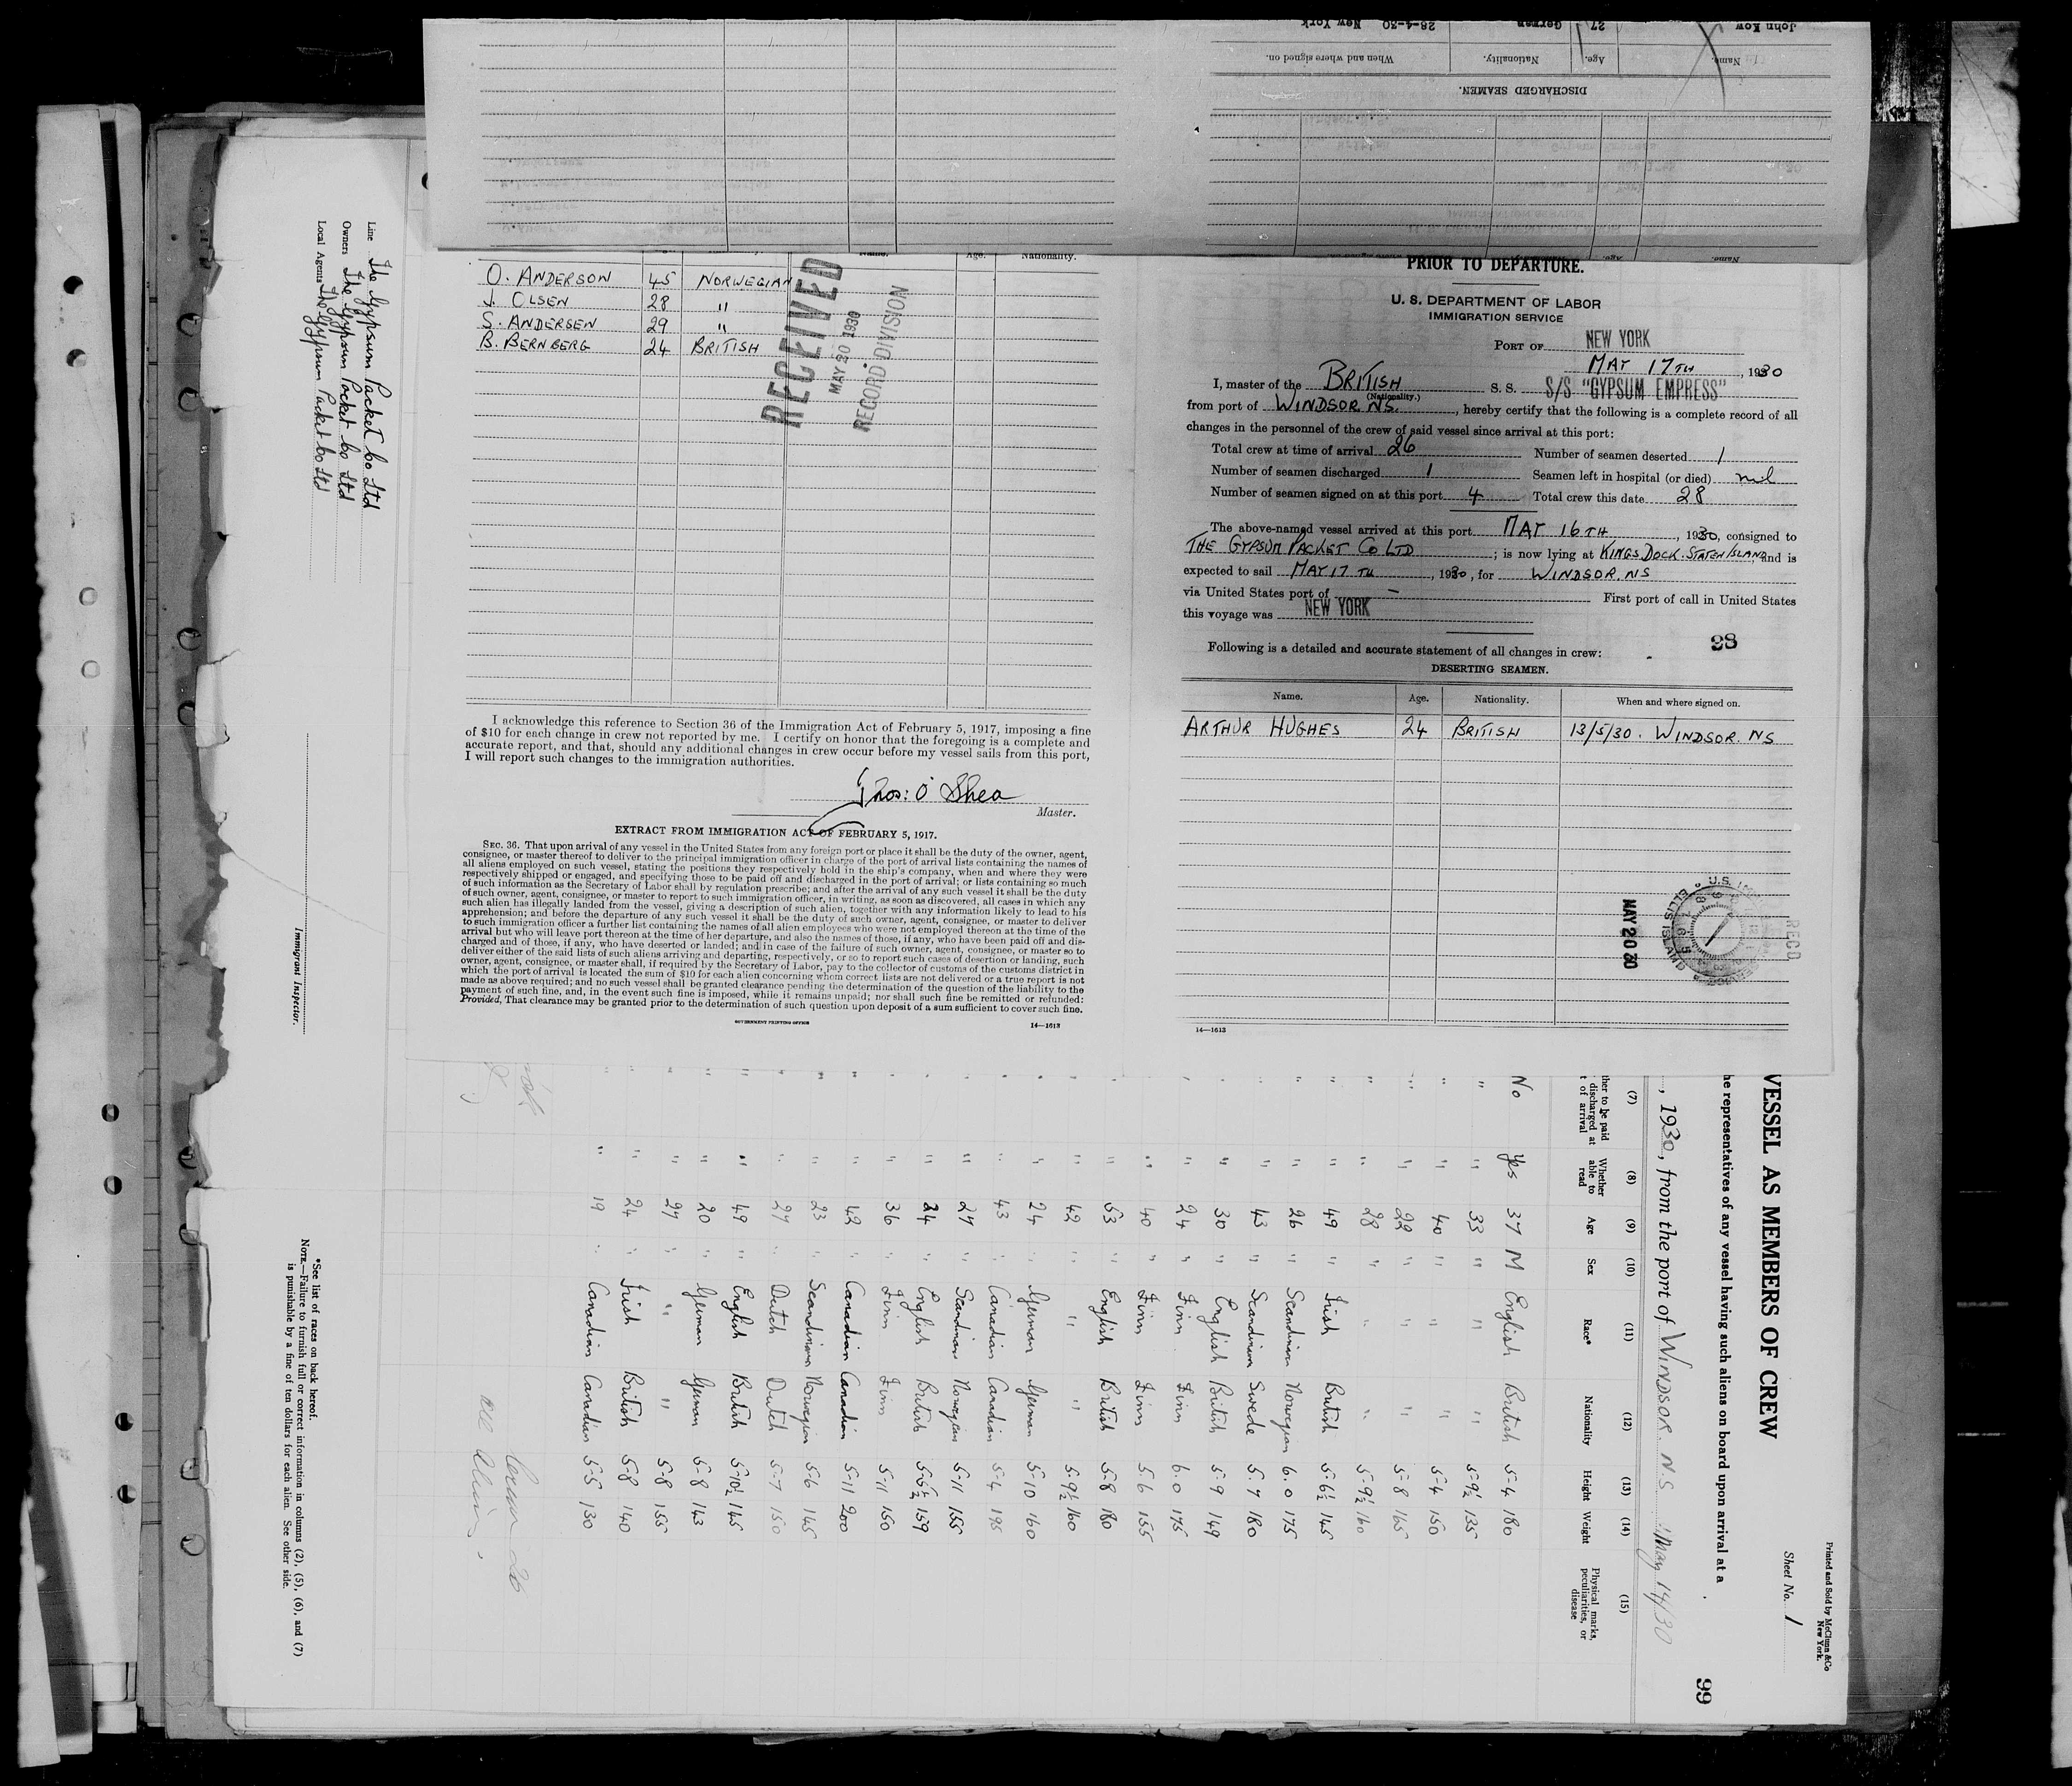 John Kow 27 German 28-4-30 New York
Name. Age. Nationality. When and where signed on.
DISCHARGED SEAMEN.
Name. Age. Nationality.
O. ANDERSON 45 NORWEGIAN
OLSEN 28 "
G. ANDERSEN 29 "
B. BERNBERG 24 BRITISH
RECEIVED
MAY 20 1930
RECORD DIVISION
I acknowledge this reference to Section 36 of the Immigration Act of February 5, 1917, imposing a fine
of $10 for each change in crew not reported by me. I certify on honor that the foregoing is a complete and
accurate report, and that, should any additional changes in crew occur before my vessel sails from this port,
I will report such changes to the immigration authorities.
Thos: O'Shea
Master.
EXTRACT FROM IMMIGRATION ACT OF FEBRUARY 5, 1917.
SEC. 36. That upon arrival of any vessel in the United States from any foreign port or place it shall be the duty of the owner, agent,
consignee, or master thereof to deliver to the principal immigration officer in charge of the port of arrival lists containing the names of
all aliens employed on such vessel, stating the positions they respectively hold in the ship's company, when and where they were
respectively shipped or engaged, and specifying those to be paid off and discharged in the port of arrival; or lists containing so much
of such information as the Secretary of Labor shall by regulation prescribe; and after the arrival of any such vessel it shall be the duty
of such owner, agent, consignee, or master to report to such immigration officer, in writing, as soon as discovered, all cases in which any
such alien has illegally landed from the vessel, giving a description of such alien, together with any information likely to lead to his
apprehension; and before the departure of any such vessel it shall be the duty of such owner, agent, consignee, or master to deliver
to such immigration officer a further list containing the names of all alien employees who were not employed thereon at the time of the
arrival but who will leave port thereon at the time of her departure, and also the names of those, if any, who have been paid off and dis-
charged and of those, if any, who have deserted or landed; and in case of the failure of such owner, agent, consignee, or master so to
deliver either of the said lists of such aliens arriving and departing, respectively, or so to report such cases of desertion or landing, such
owner, agent, consignee, or master shall, if required by the Secretary of Labor, pay to the collector of customs of the customs district in
which the port of arrival is located the sum of $10 for each alien concerning whom correct lists are not delivered or a true report is not
made as above required; and no such vessel shall be granted clearance pending the determination of the question of the liability to the
payment of such fine, and, in the event such fine is imposed, while it remains unpaid; nor shall such fine be remitted or refunded:
Provided, That clearance may be granted prior to the determination of such question upon deposit of a sum sufficient to cover such fine.
GOVERNMENT PRINTING OFFICE 14—1613
PRIOR TO DEPARTURE.
U. S. DEPARTMENT OF LABOR
IMMIGRATION SERVICE
PORT OF NEW YORK
MAY 17TH, 1930
I, master of the BRITISH S. S. S/S "GYPSUM EMPRESS"
(Nationality.)
from port of WINDSOR. NS., hereby certify that the following is a complete record of all
changes in the personnel of the crew of said vessel since arrival at this port:
Total crew at time of arrival 26 Number of seamen deserted 1
Number of seamen discharged 1 Seamen left in hospital (or died) nil
Number of seamen signed on at this port 4 Total crew this date 28
The above-named vessel arrived at this port MAY 16TH, 1930, consigned to
THE GYPSUM PACKET CO LTD; is now lying at KINGS DOCK. STATEN ISLAND, and is
expected to sail MAY 17TH, 1930, for WINDSOR. NS
via United States port of — First port of call in United States
this voyage was NEW YORK
28
Following is a detailed and accurate statement of all changes in crew:
DESERTING SEAMEN.
Name. Age. Nationality. When and where signed on.
ARTHUR HUGHES 24 BRITISH 13/5/30. WINDSOR. NS
MAY 20 30
ELLIS ISLAND
REC'D
14—1613
Line The Gypsum Packet Co Ltd
Owners The Gypsum Packet Co Ltd
Local Agents The Gypsum Packet Co Ltd
Immigrant Inspector.
Printed and Sold by McClunn & Co
New York.
Sheet No. 1
99
VESSEL AS MEMBERS OF CREW
he representatives of any vessel having such aliens on board upon arrival at a
, 1930, from the port of WINDSOR N.S. May 14/30
(7) (8) (9) (10) (11) (12) (13) (14) (15)
ther to be paid discharged at t of arrival Whether able to read Age Sex Race* Nationality Height Weight Physical marks, peculiarities, or disease
No Yes 37 M English British 5-4 180
" " 33 " " " 5-9½ 135
" " 40 " " " 5-4 150
" " 22 " " " 5-8 165
" " 28 " " " 5-9½ 160
" " 49 " Irish British 5-6½ 145
" " 26 " Scandinavn Norwegian 6.0 175
" " 43 " Scandinavn Swede 5.7 180
" " 30 " English British 5-9 149
" " 24 " Finn Finn 6.0 175
" " 40 " Finn Finn 5.6 155
" " 53 " English British 5-8 180
" " 42 " " " 5-9½ 160
" " 24 " German German 5-10 160
" " 43 " Canadian Canadian 5-4 195
" " 27 " Scandinavn Norwegian 5-11 155
" " 24 " English British 5-5½ 159
" " 36 " Finn Finn 5-11 150
" " 42 " Canadian Canadian 5-11 200
" " 23 " Scandinavn Norwegian 5-6 145
" " 27 " Dutch Dutch 5-7 150
" " 49 " English British 5-10½ 145
" " 20 " German German 5-8 143
" " 27 " " " 5-8 155
" " 24 " Irish British 5-8 140
" " 19 " Canadian Canadian 5-5 130
Crew 26
All Aliens
*See list of races on back hereof.
NOTE.—Failure to furnish full or correct information in columns (2), (5), (6), and (7)
is punishable by a fine of ten dollars for each alien. See other side.